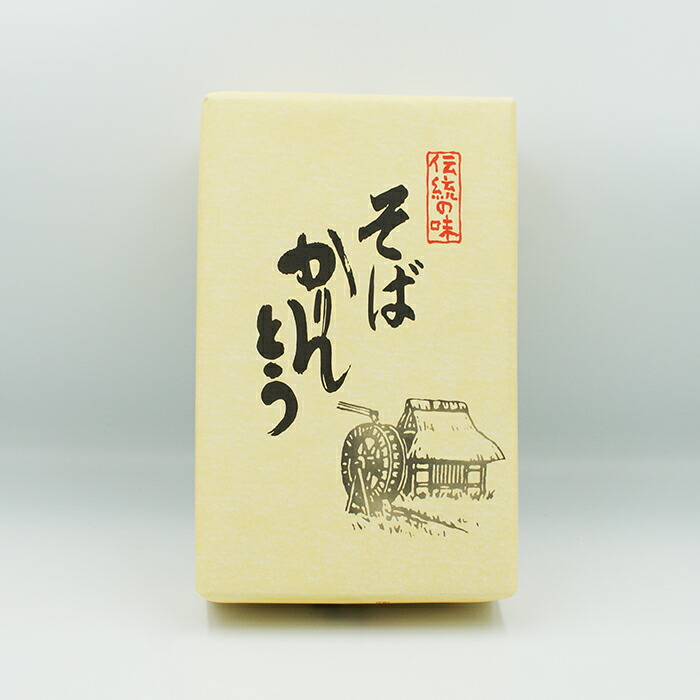 伝統の味
そば
かりん
とう